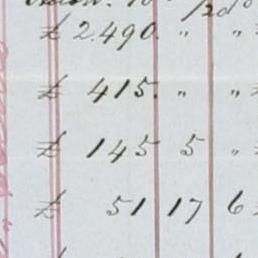 £ 2.490. " "
£ 415. " "
£ 145 5 "
£ 51 17 6